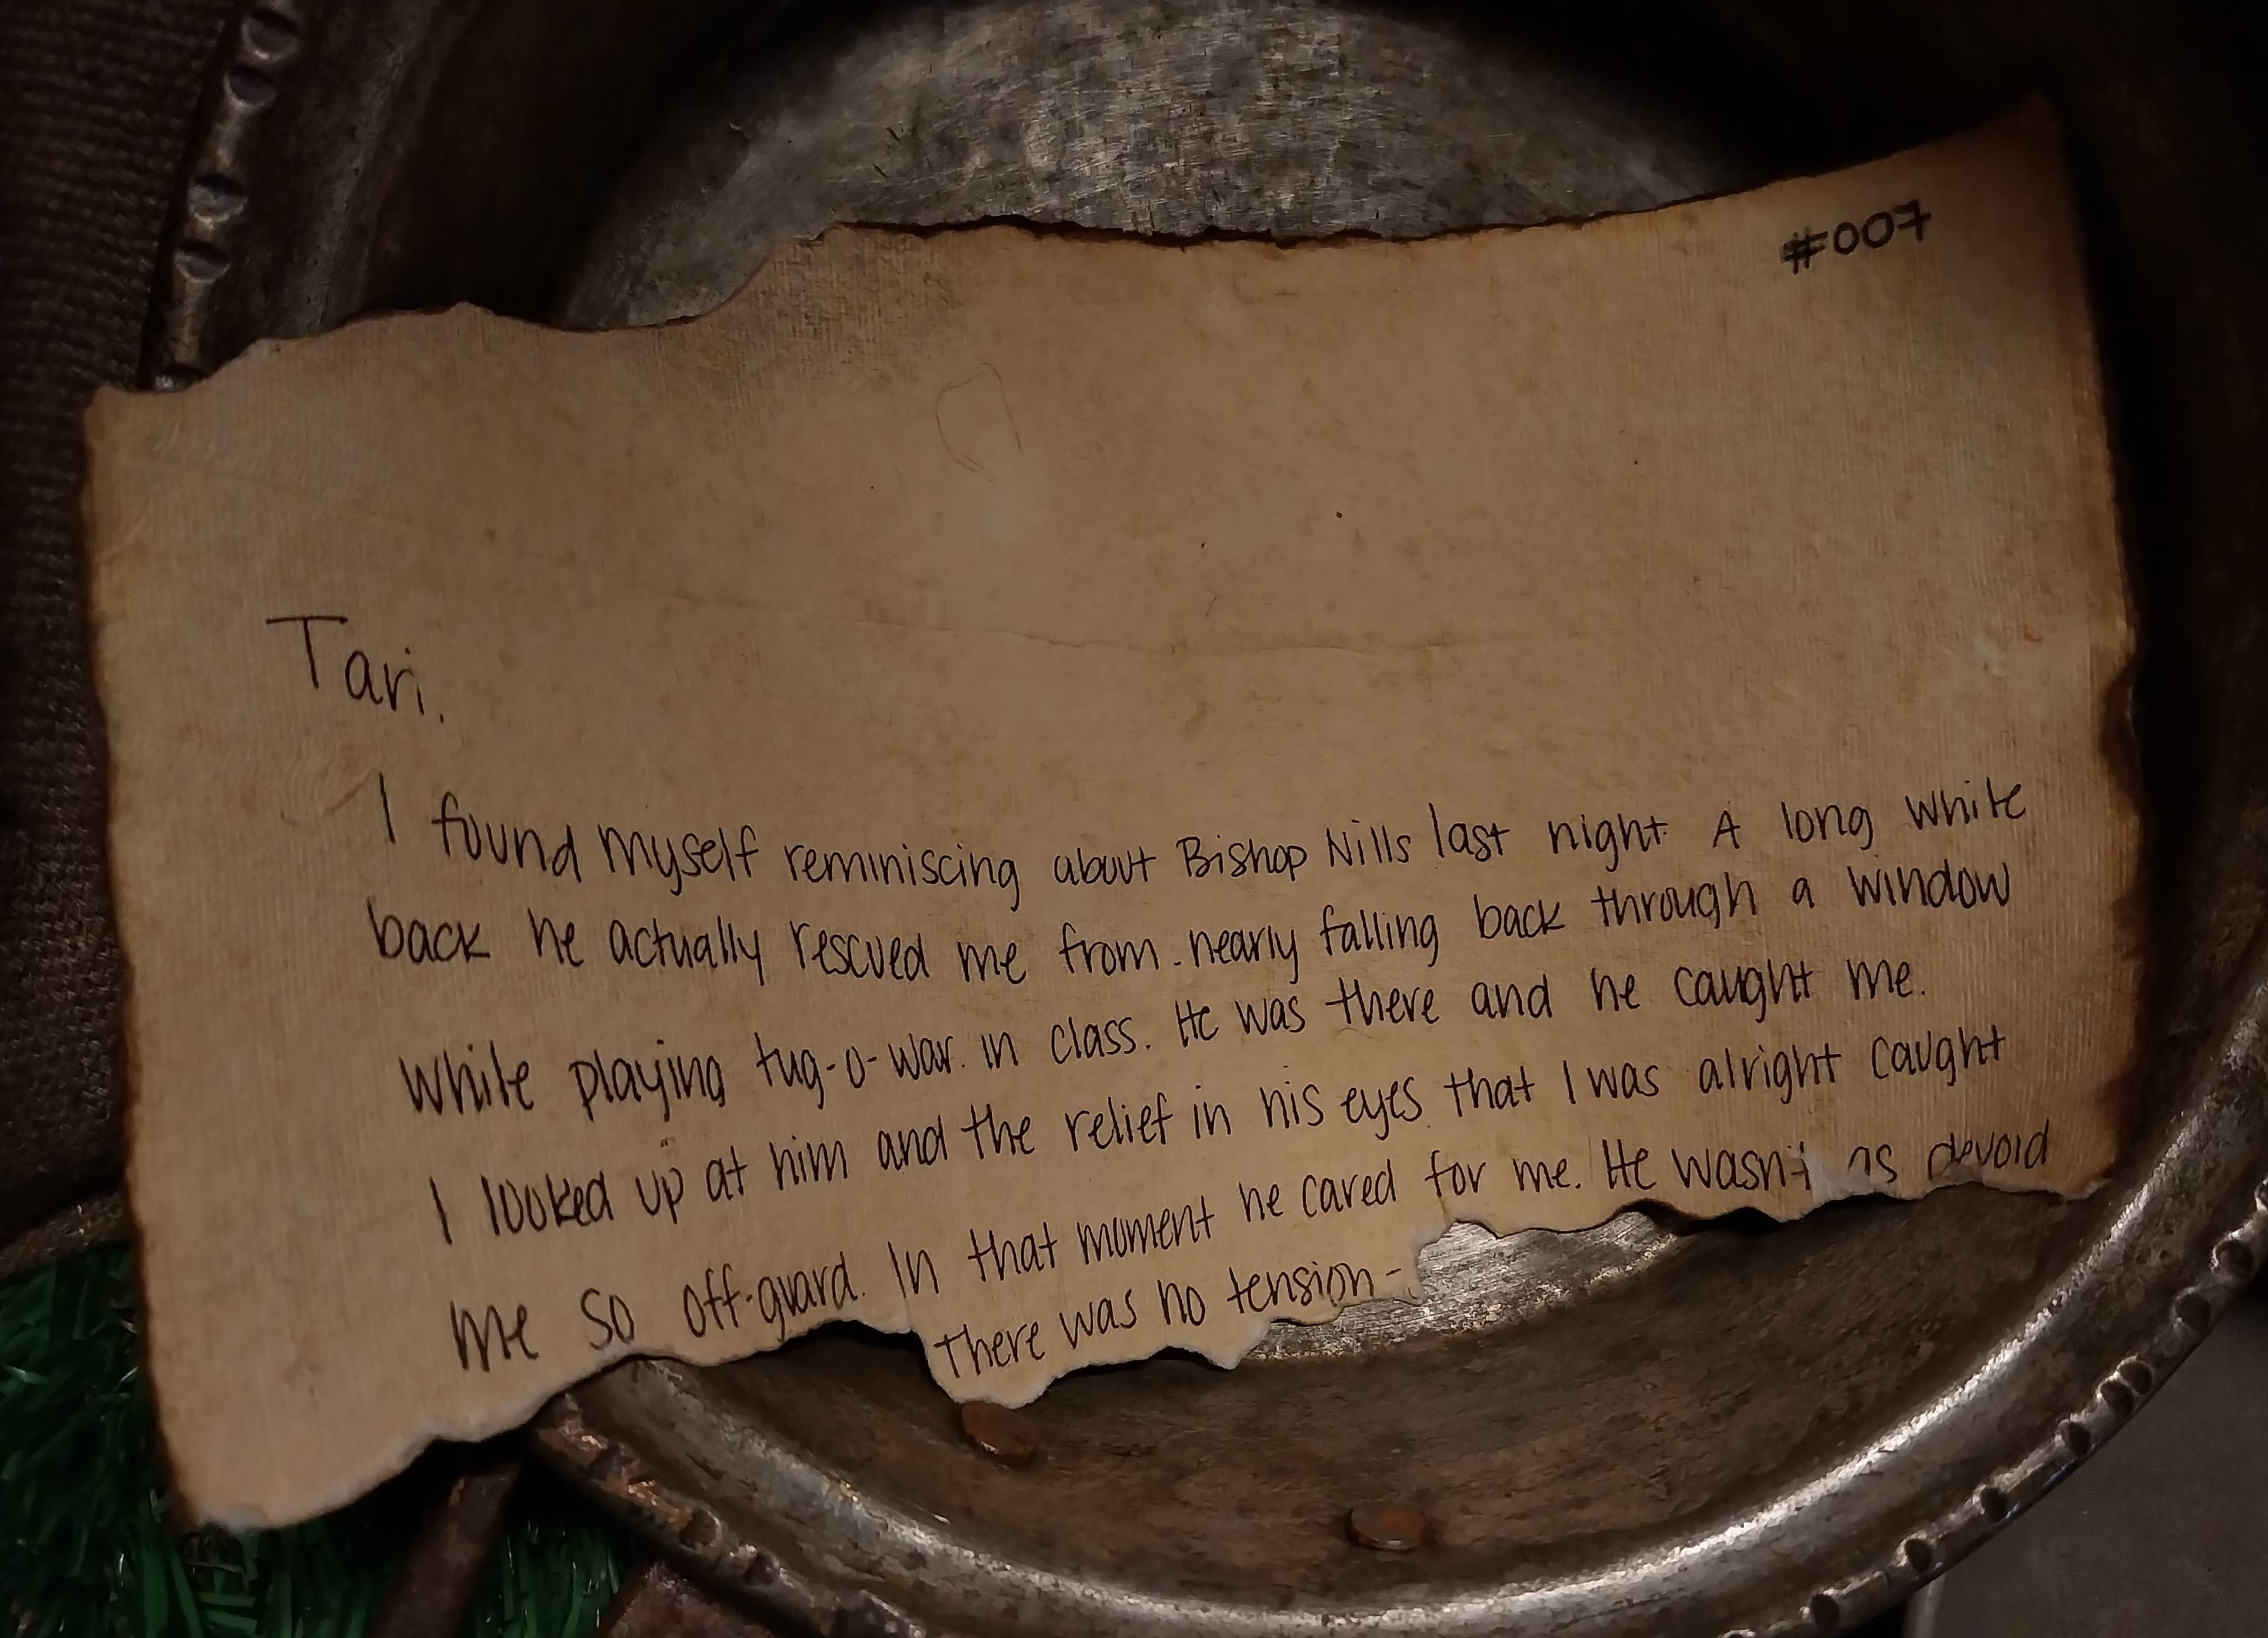 #007
Tari.
I found myself reminiscing about Bishop Nills last night. A long white
back he actually rescued me from nearly falling back through a window
while playing tug-o-war. in class. He was there and he caught me.
I looked up at him and the relief in his eyes that I was alright caught
me so off-guard. In that moment he cared for me. He wasn't as devoid
there was no tension-